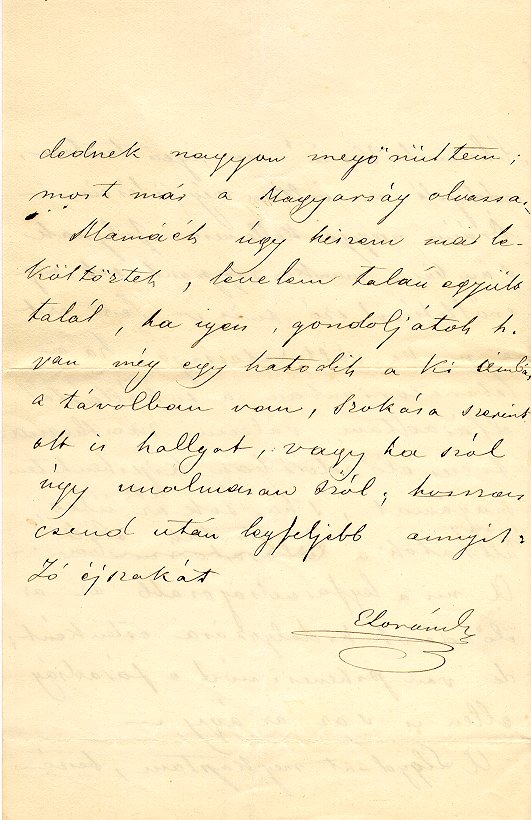 dednek nagyon megörültem;
most már a Magyarság olvassa.
Mamáék úgy hiszem már le-
költöztek, levelem talán együtt
talál, ha igen, gondoljátok h.
van még egy hatodik a ki
a távolban van, szokása szerint
ott is hallgat, vagy ha szól
úgy unalmasan szól; hosszas
csend után legfeljebb annyit:
Jó éjszakát
Loránd